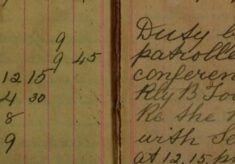 9
9 45
12 15
4 30
8
9
Duty b
patrolle
conferen
Rly B. To
Re the
with Se
at 12.15 p